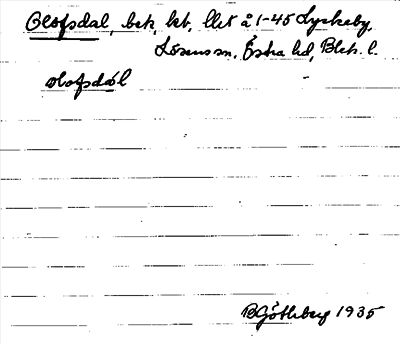 Olofsdal, bek, kb, llet å 1-45 Lyckeby,
Lösens sn, Östra hd, Blek. l.
olofsdàl
B Götheberg 1935